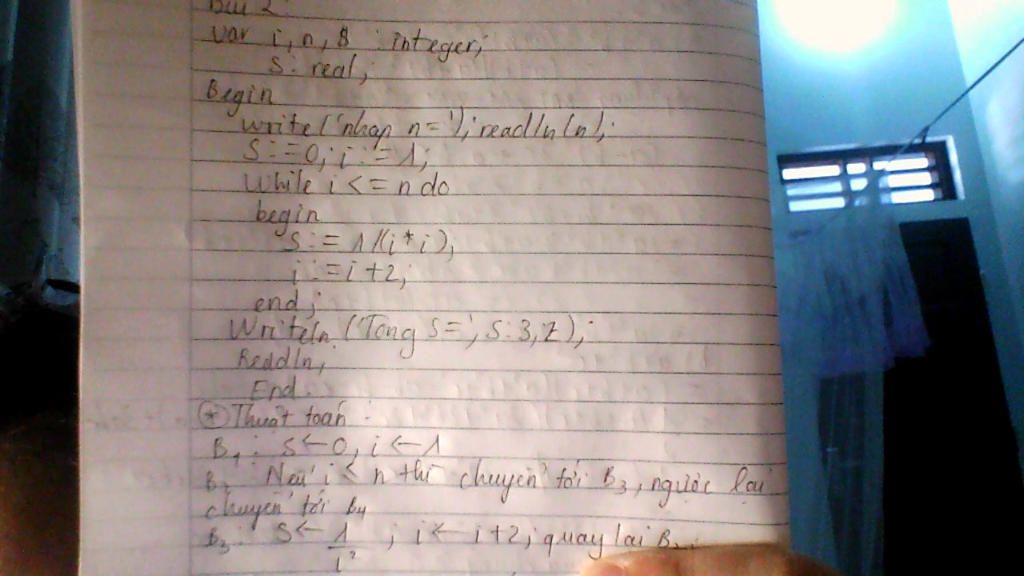 Bài 2
Var i, n, S : integer;
S : real;
Begin
Write('nhap n='); readln(n);
S := 0; i := 1;
While i <= n do
begin
S := 1/(i*i);
i := i + 2;
end;
Writeln ('Tong S=', S:3,2);
Readln;
End.
* Thuật toán :
B1 : S ← 0, i ← 1
B2 Nếu i < n thì chuyển tới B3, ngược lại
chuyển tới B4
B3 : S ← 1/i² ; i ← i + 2; quay lại B2;